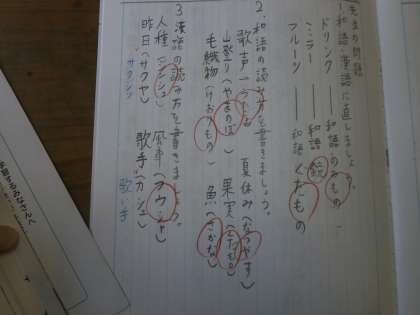 先生の問題
1 和語・漢語に直しましょう。
ドリンク 和語 のみもの
ミラー 和語 鏡
フルーツ 和語 くだもの
2. 和語の読み方を書きましょう。
歌声( 夏休み(なつやす
山登り(やまのぼ 果実(くだもの)
毛織物(けおりもの) 魚(さかな)
3 漢語の読み方を書きましょう。
人種(ジンシュ) 風車(フウシャ)
昨日(サクヤ) 歌手(カシュ)
サクジツ 歌い手
みなさんへ